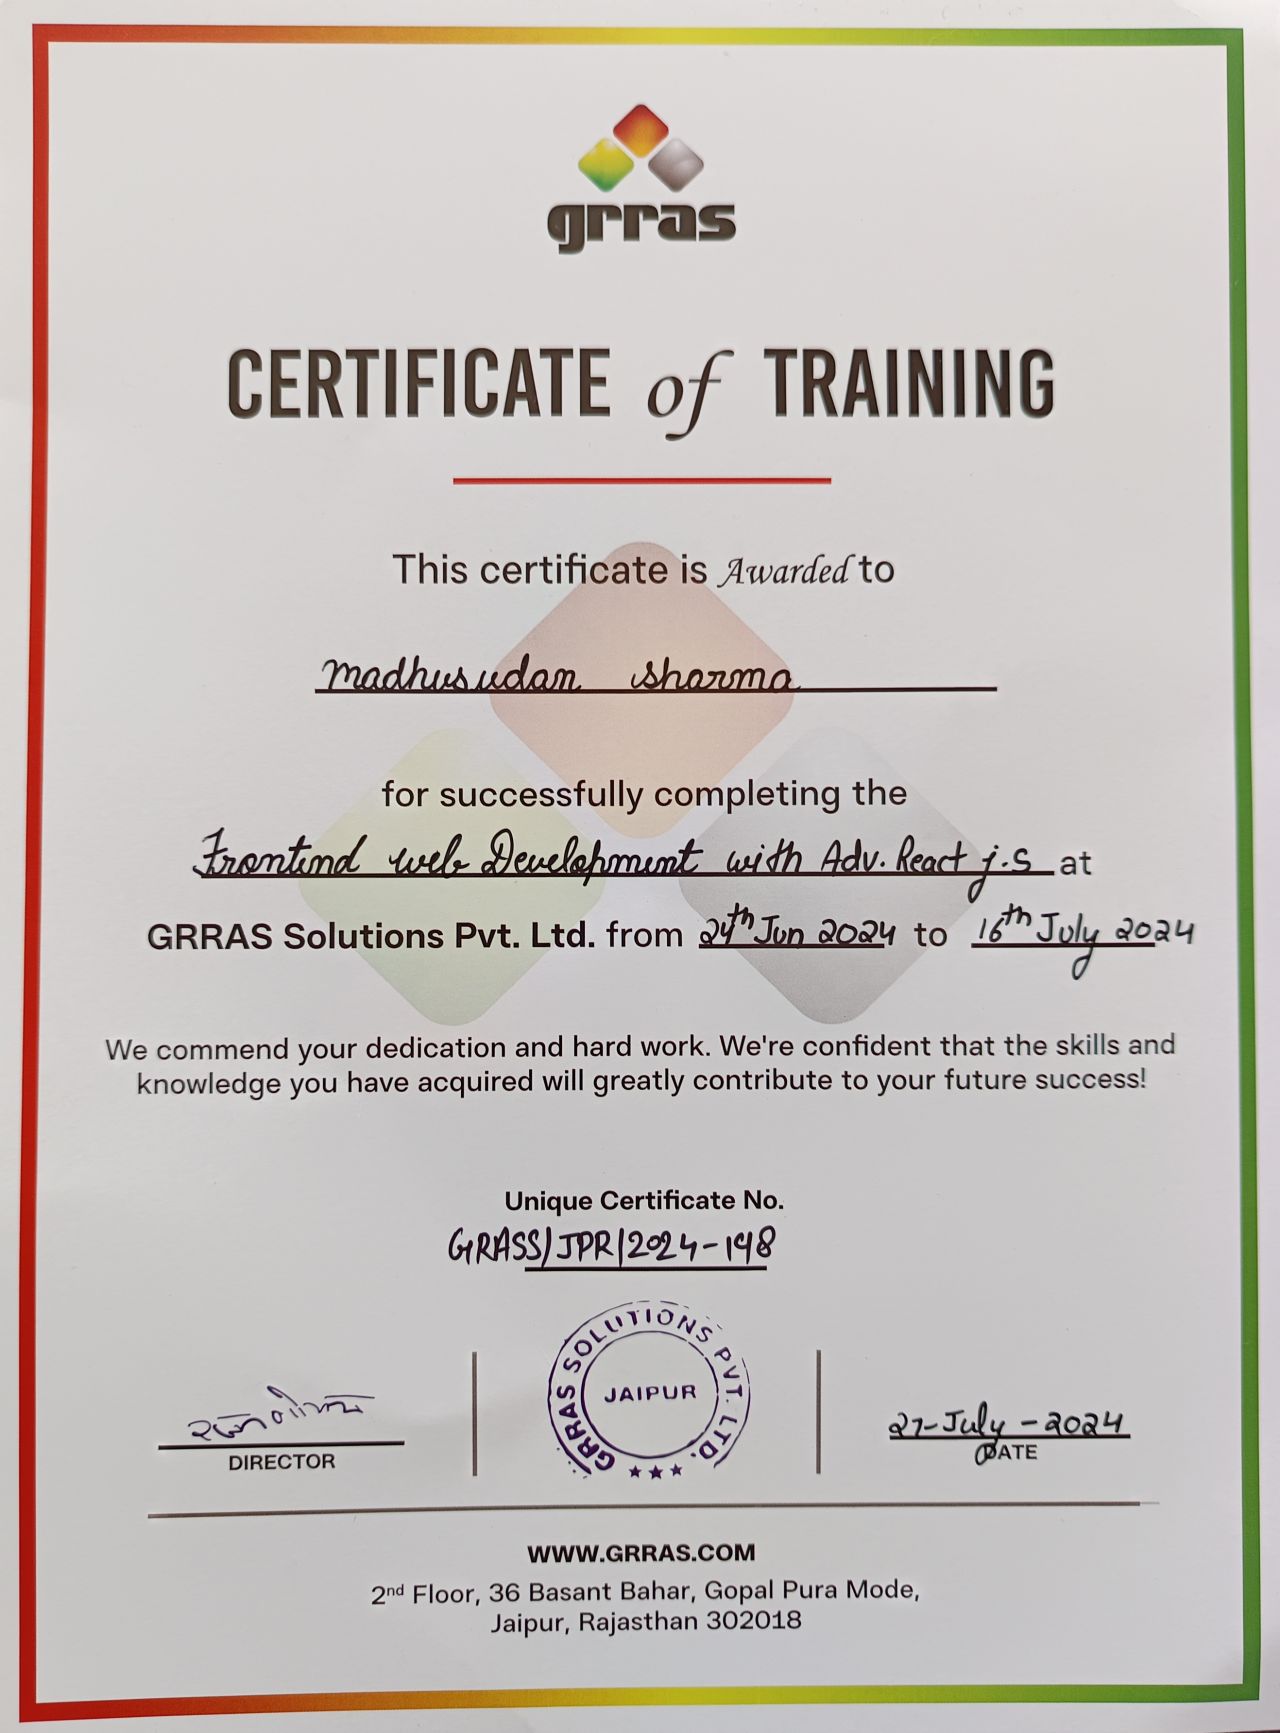 grras
CERTIFICATE of TRAINING
This certificate is Awarded to
Madhusudan Sharma
for successfully completing the
Frontend web Development with Adv. React j.s at
GRRAS Solutions Pvt. Ltd. from 24th Jun 2024 to 16th July 2024
We commend your dedication and hard work. We're confident that the skills and
knowledge you have acquired will greatly contribute to your future success!
Unique Certificate No.
GRASS/JPR/2024-148
GRRAS SOLUTIONS PVT. LTD.
JAIPUR
27-July-2024
DIRECTOR
DATE
WWW.GRRAS.COM
2nd Floor, 36 Basant Bahar, Gopal Pura Mode,
Jaipur, Rajasthan 302018